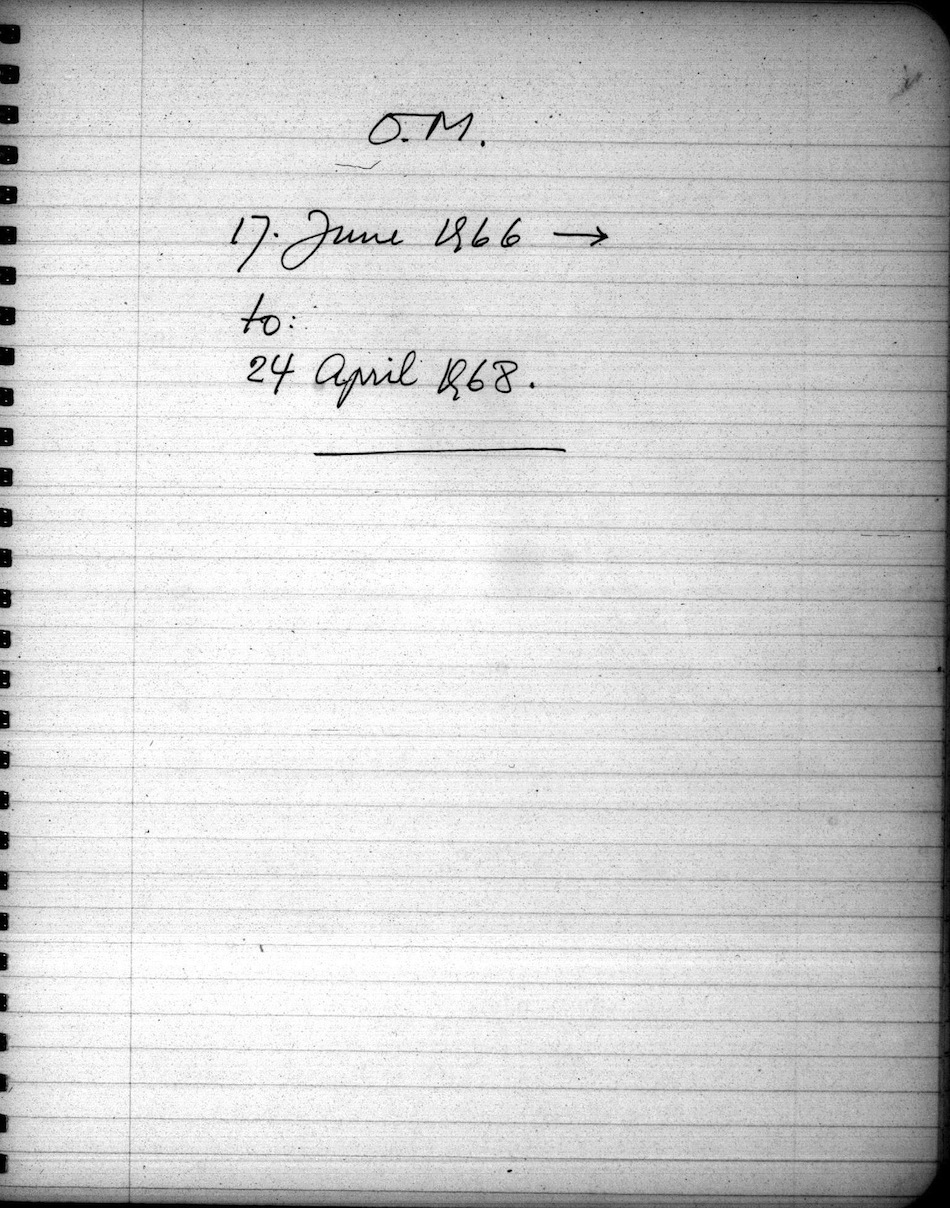 O.M.
17. June 1966 →
to:
24 April 1968.